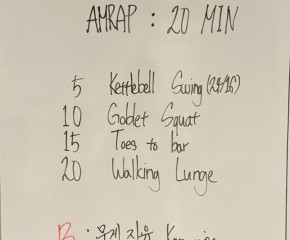 AMRAP : 20 MIN
5 Kettlebell Swing (24/16)
10 Goblet Squat
15 Toes to bar
20 Walking Lunge
B : 무게 자유